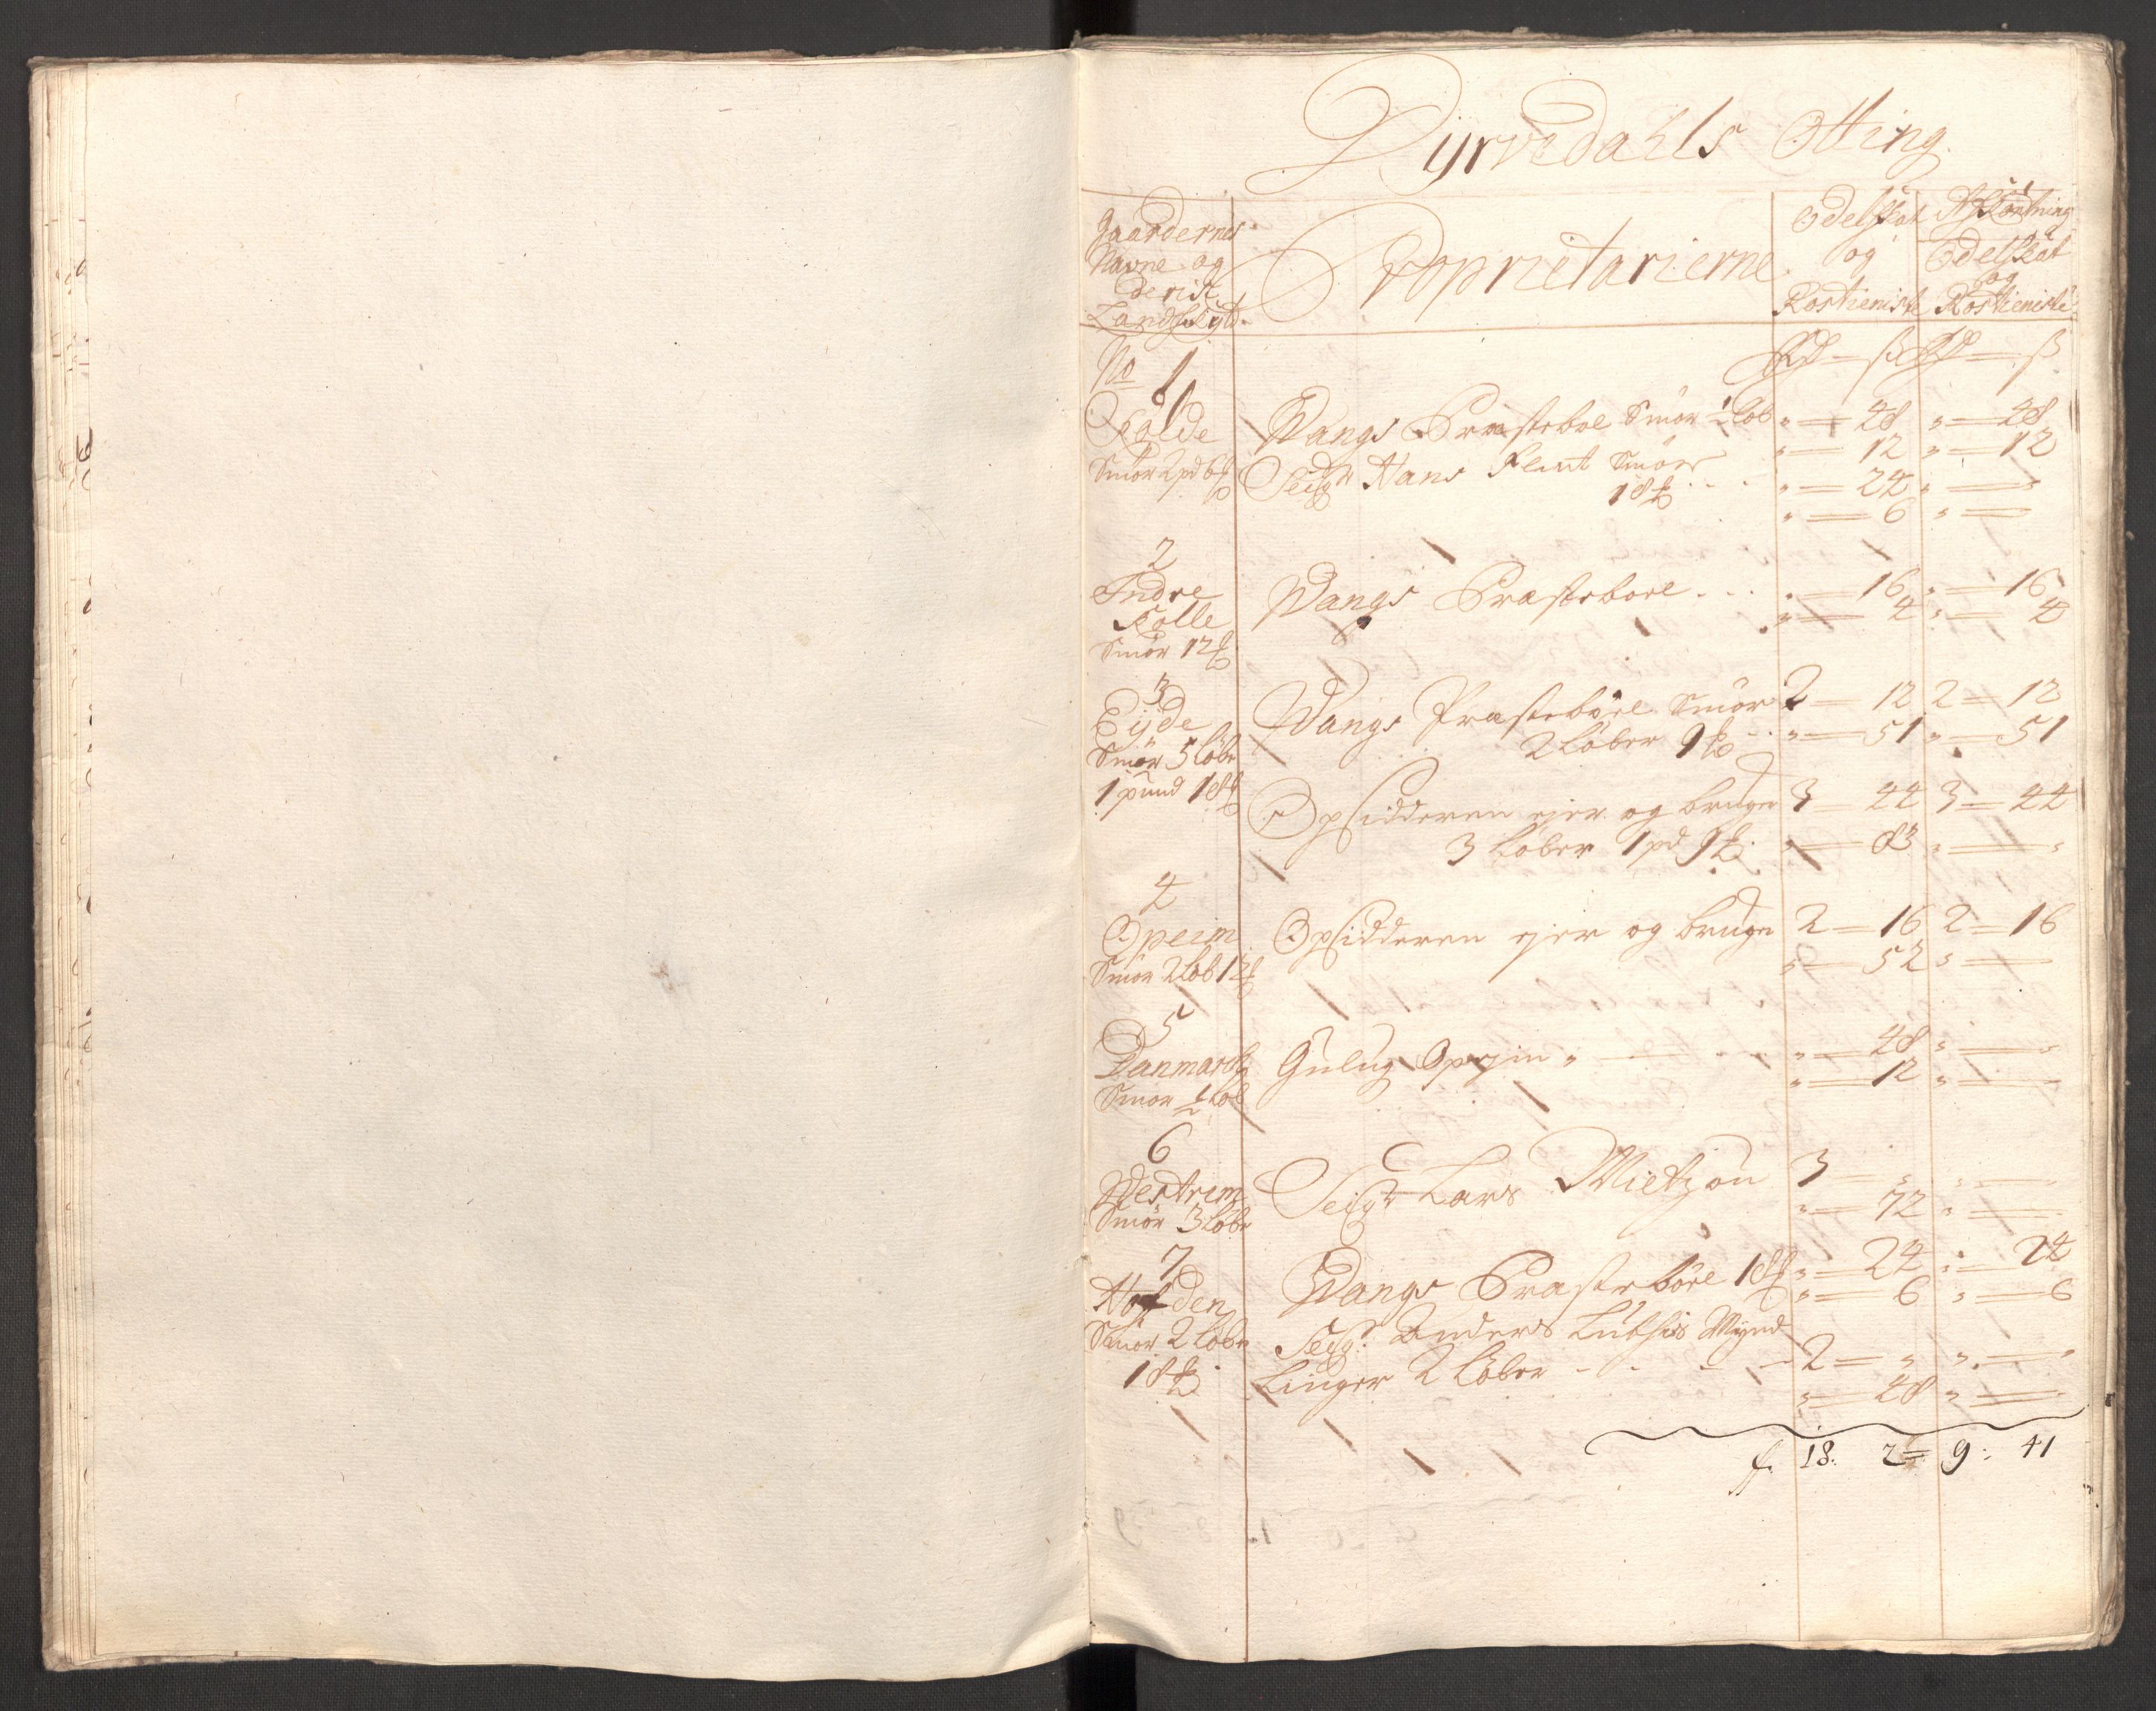 Dyrvedahls Otting
Gaardernes
Navne og
deris
Landskyld
Proprietarierne
Odelskat
og
Rostieniste
Afkortning
Odelskat
og
Rostieniste
Rd — ß Rd — ß
No 1
Schølde
Smør 2 pd 6 ℔
Wangs Præstebol Smør ½ Løb " — 48 " — 48
" — 12 " — 12
Seigr Hans Flint Smør
18 ℔ . . . " — 24 " —
" — 6 " —
2
Indre
Kolle
Smør 12 ℔
Wangs Præsteboel . . . " — 16 " — 16
" — 4 " — 4
3
Eyde
Smør 5 løbe
1 pund 18 ℔
Wangs Præstebøel Smør 2 — 12 2 — 12
2 Løber 9 ℔ . . " — 51 " — 51
Opsidderen ejer og bruger 3 — 44 3 — 44
3 Løber 1 pd 9 ℔ . " — 83 " —
4
Opeim
Smør 2 Løb 12 ℔
Opsidderen ejer og bruger 2 — 16 2 — 16
" — 52 " —
5
Danmark
Smør ½ Løb
Gulug Opejm " — . . " — 48 " —
" — 12 " —
6
Westrem
Smør 3 Løbe
Seigr Lars Mietzon 3 — " " —
" — 72 " —
7
Hofden
Smør 2 Løbe
18 ℔
Wangs Præstebøel 18 ℔ " — 24 " — 24
" — 6 " — 6
Seigr Anders Lubsis Mynd
Linger 2 Løber - - - 2 — " " —
" — 48 " —
f. 18: 2 = 9: 41